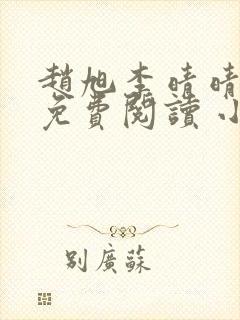 趙旭李晴晴
免費閱讀小
别廣蘇